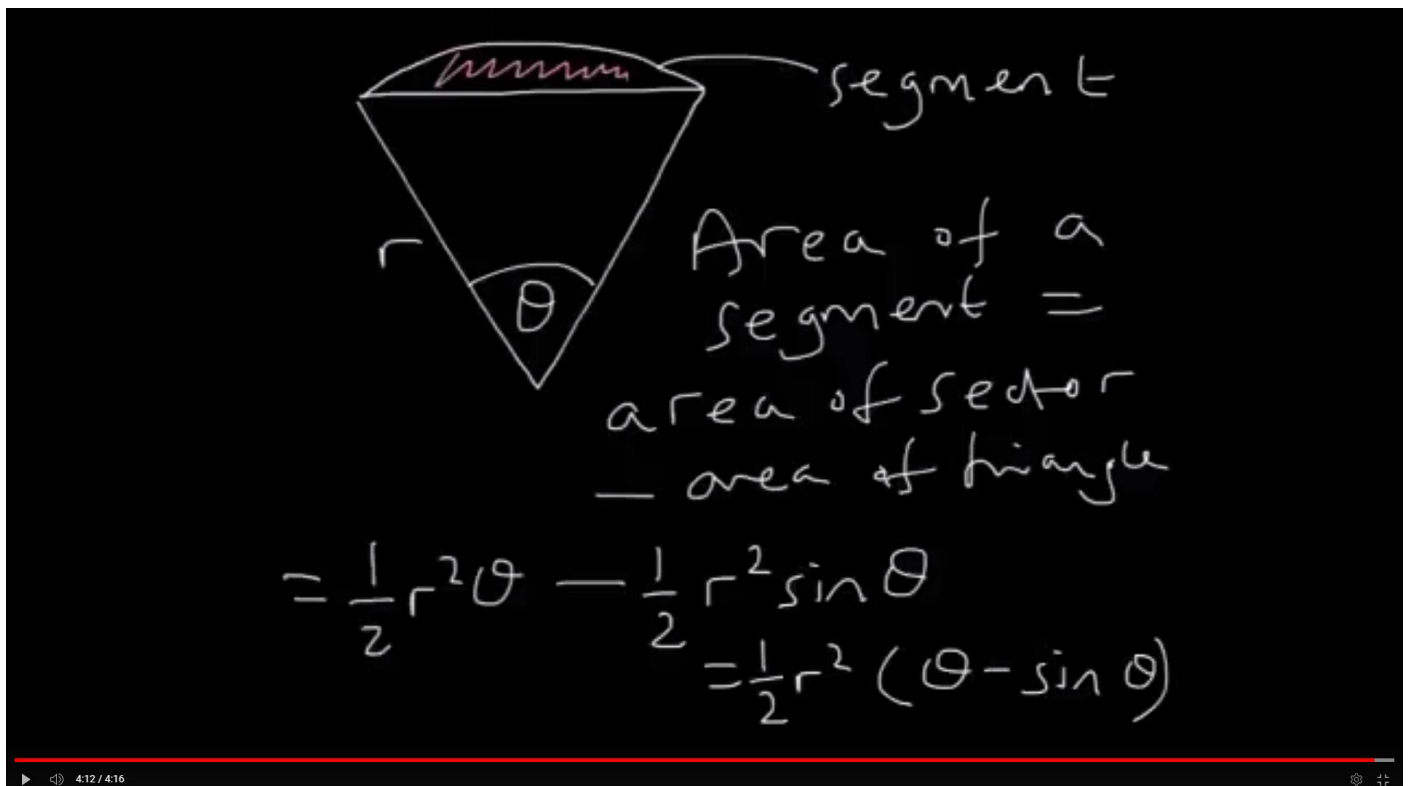 segment
r
θ
Area of a
segment =
area of sector
— area of triangle
= 1/2 r²θ — 1/2 r² sin θ
= 1/2 r² (θ - sin θ)
4:12 / 4:16